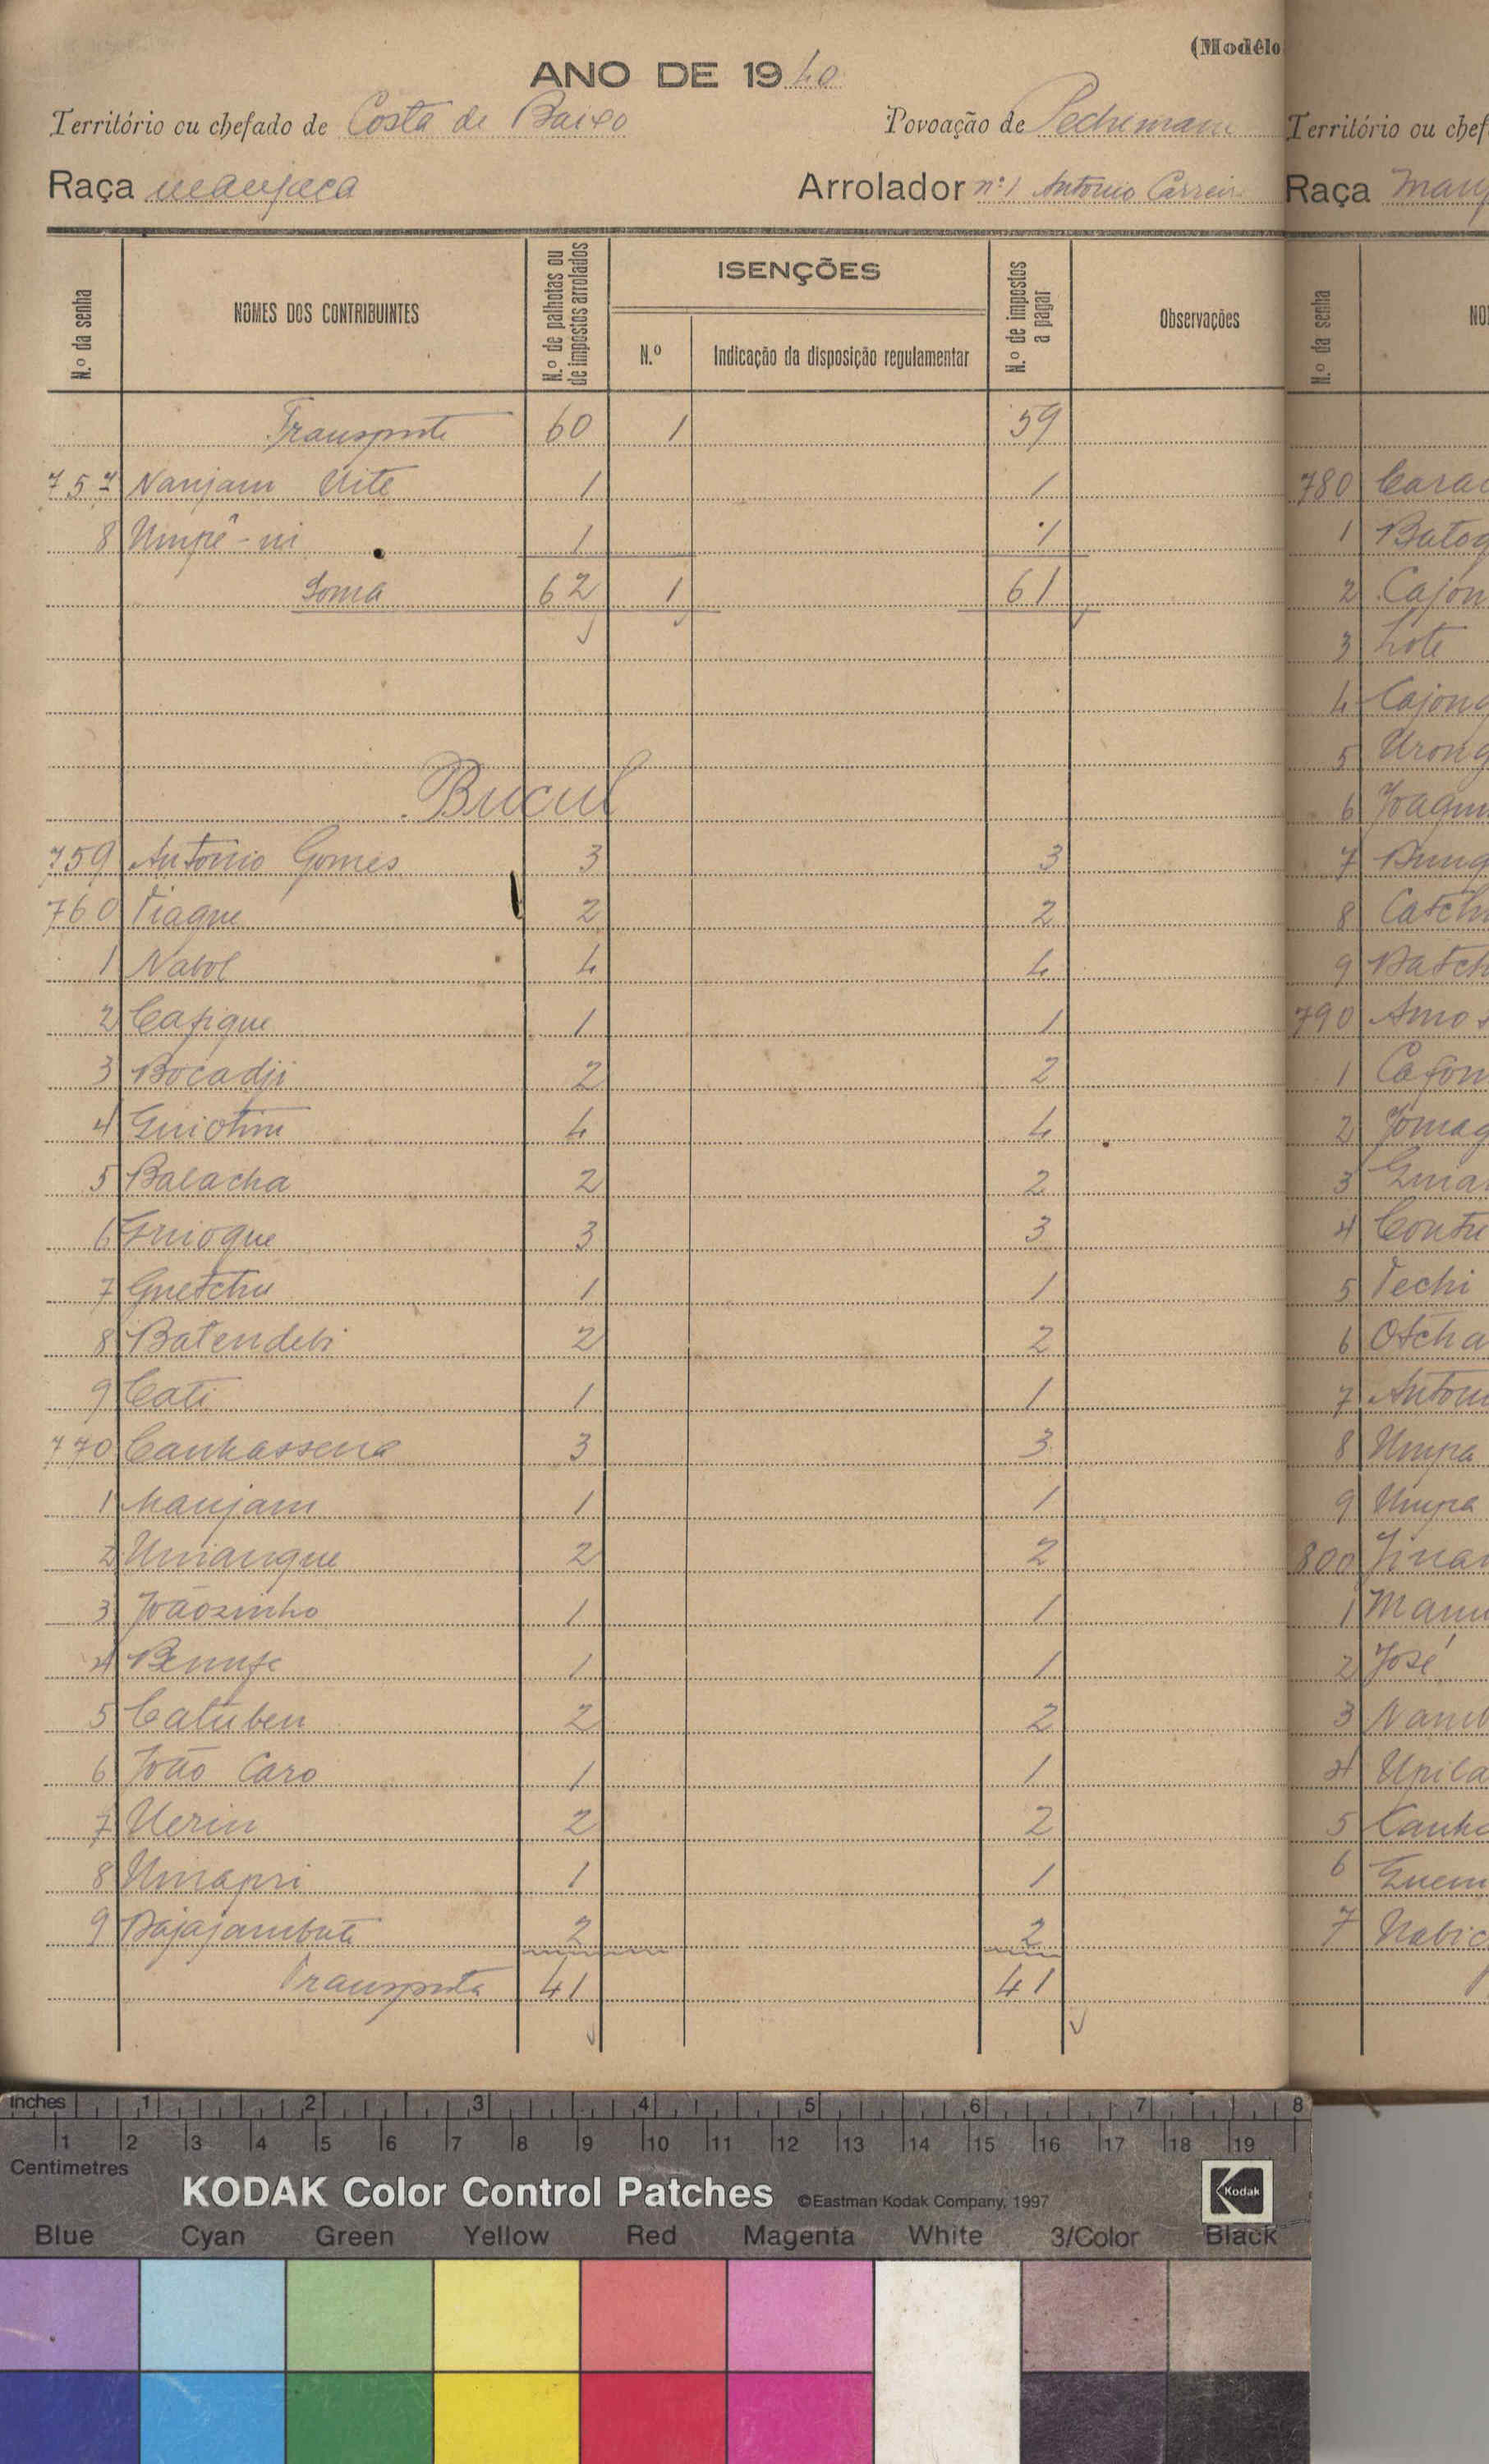 (Modêlo
ANO DE 1940
Território ou chefado de Costa de Baixo Povoação de Pechemam
Raça manjaca Arrolador n.º 1 Antonio Carrei
N.º da senha
NOMES DOS CONTRIBUINTES
N.º de palhotas ou de impostos arrolados
ISENÇÕES
N.º
Indicação da disposição regulamentar
N.º de impostos a pagar
Observações
Transporte 60 1 59
757 Nanjam Uite 1 1
8 Umpê-ni 1 1
Soma 62 1 61
Bucul
759 António Gomes 3 3
760 Tiague 2 2
1 Nabol 4 4
2 Cafique 1 1
3 Bocadji 2 2
4 Guiotim 4 4
5 Balacha 2 2
6 Guioque 3 3
7 Guetchu 1 1
8 Batendebi 2 2
9 Cati 1 1
770 Canhassena 3 3
1 Manjam 1 1
2 Umangue 2 2
3 Joãozinho 1 1
4 1 1
5 Catuben 2 2
6 João Caro 1 1
7 Uerin 2 2
8 Umapri 1 1
9 Bajajambute 2 2
Transporte 41 41
Território ou chef
Raça Manj
N.º da senha
NO
780 Carac
1 Batoq
2 Cajon
3 Lote
4 Cajong
5 Urong
6 Joaqu
7 Bung
8 Catch
9 Batch
790 Amos
1 Cafon
2 Jomag
3 Guia
4 Contu
5 Techi
6 Otcha
7 Antoni
8 Umpa
9 Umpa
800
1 Manu
2 José
3 Nam
4 Upila
5 Canh
6 Guem
7 Nabic
inches 1 2 3 4 5 6 7 8
1 2 3 4 5 6 7 8 9 10 11 12 13 14 15 16 17 18 19
Centimetres
KODAK Color Control Patches ©Eastman Kodak Company, 1997 Kodak
Blue Cyan Green Yellow Red Magenta White 3/Color Black